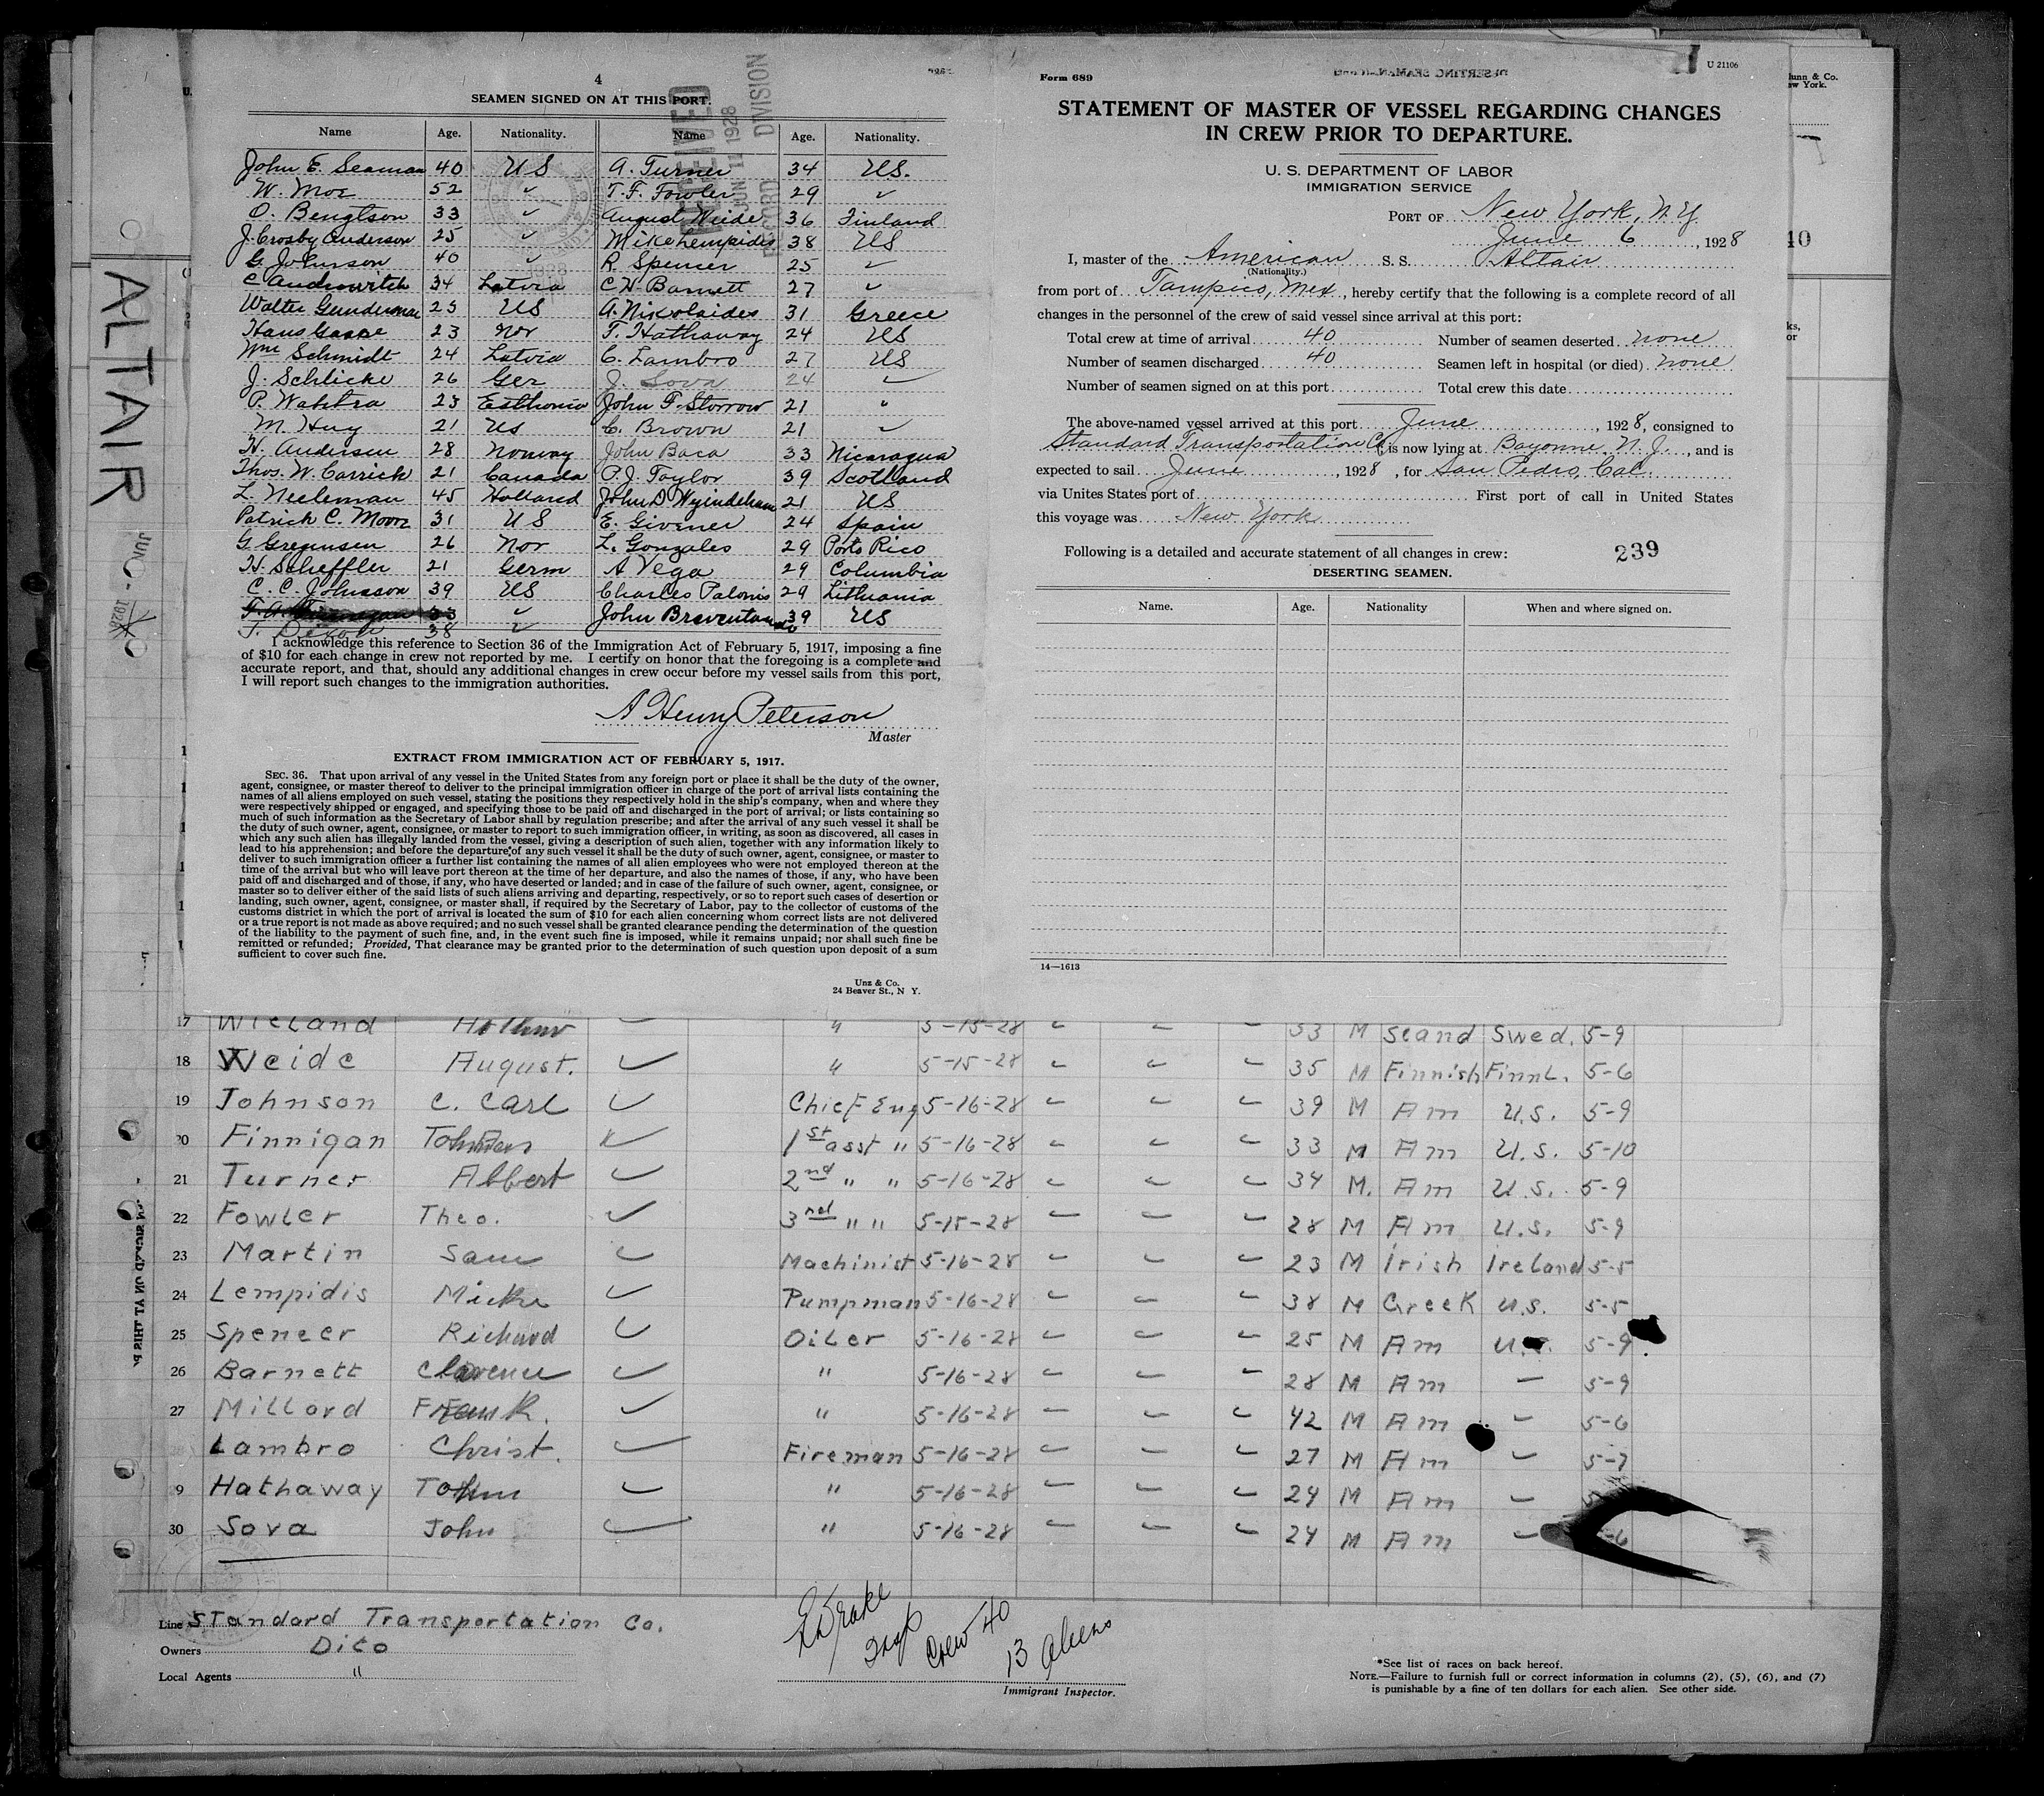 4
SEAMEN SIGNED ON AT THIS PORT.
Name Age. Nationality. Name Age. Nationality.
John E. Seaman 40 US A. Turner 34 US.
W. Moe 52 " T. F. Fowler 29 "
O. Bengtson 33 " August Wiide 36 Finland
J. Crosby Anderson 25 " Mike Lempidis 38 US
G. Johnson 40 " R. Spencer 25 "
C Androwitch 34 Latvia C H. Barnett 27 "
Walter Gunderman 23 US A. Nikolaides 31 Greece
Hans Gaare 23 Nor T. Hathaway 24 US
Wm Schmidt 24 Latvia C. Lambro 27 US
J. Schlicke 26 Ger J. Sova 24 "
P. Wahtra 23 Esthonia John F. Storrow 21 "
M. Huy 21 US C. Brown 21 "
H. Andersen 28 Norway John Baca 33 Nicaragua
Thos. W. Carrick 21 Canada P. J. Taylor 39 Scotland
L. Neeleman 45 Holland John D Wyindeham 21 US
Patrick C. Moore 31 US E. Givener 24 Spain
G Gregunsen 26 Nor L. Gonzales 29 Porto Rico
H. Scheffler 21 Germ A Vega 29 Columbia
C. C. Johnson 39 US Charles Palonis 29 Lithuania
33 " John Breventano 39 US
J. Dixon 38 "
I acknowledge this reference to Section 36 of the Immigration Act of February 5, 1917, imposing a fine
of $10 for each change in crew not reported by me. I certify on honor that the foregoing is a complete and
accurate report, and that, should any additional changes in crew occur before my vessel sails from this port,
I will report such changes to the immigration authorities.
A Henry Peterson
Master
EXTRACT FROM IMMIGRATION ACT OF FEBRUARY 5, 1917.
SEC. 36. That upon arrival of any vessel in the United States from any foreign port or place it shall be the duty of the owner,
agent, consignee, or master thereof to deliver to the principal immigration officer in charge of the port of arrival lists containing the
names of all aliens employed on such vessel, stating the positions they respectively hold in the ship's company, when and where they
were respectively shipped or engaged, and specifying those to be paid off and discharged in the port of arrival; or lists containing so
much of such information as the Secretary of Labor shall by regulation prescribe; and after the arrival of any such vessel it shall be
the duty of such owner, agent, consignee, or master to report to such immigration officer, in writing, as soon as discovered, all cases in
which any such alien has illegally landed from the vessel, giving a description of such alien, together with any information likely to
lead to his apprehension; and before the departure of any such vessel it shall be the duty of such owner, agent, consignee, or master to
deliver to such immigration officer a further list containing the names of all alien employees who were not employed thereon at the
time of the arrival but who will leave port thereon at the time of her departure, and also the names of those, if any, who have been
paid off and discharged and of those, if any, who have deserted or landed; and in case of the failure of such owner, agent, consignee, or
master so to deliver either of the said lists of such aliens arriving and departing, respectively, or so to report such cases of desertion or
landing, such owner, agent, consignee, or master shall, if required by the Secretary of Labor, pay to the collector of customs of the
customs district in which the port of arrival is located the sum of $10 for each alien concerning whom correct lists are not delivered
or a true report is not made as above required; and no such vessel shall be granted clearance pending the determination of the question
of the liability to the payment of such fine, and, in the event such fine is imposed, while it remains unpaid; nor shall such fine be
remitted or refunded; Provided, That clearance may be granted prior to the determination of such question upon deposit of a sum
sufficient to cover such fine.
Unz & Co.
24 Beaver St., N Y.
RECEIVED
JUN 11 1928
RECORD DIVISION
ALTAIR
JUN 6 - 1928
Form 689
U 21106
STATEMENT OF MASTER OF VESSEL REGARDING CHANGES
IN CREW PRIOR TO DEPARTURE.
U. S. DEPARTMENT OF LABOR
IMMIGRATION SERVICE
PORT OF New York, N.Y.
June 6, 1928
I, master of the American S. S. Altair
(Nationality.)
from port of Tampico, Mex, hereby certify that the following is a complete record of all
changes in the personnel of the crew of said vessel since arrival at this port:
Total crew at time of arrival 40 Number of seamen deserted none
Number of seamen discharged 40 Seamen left in hospital (or died) none
Number of seamen signed on at this port Total crew this date
The above-named vessel arrived at this port June, 1928, consigned to
Standard Transportation Co, is now lying at Bayonne N. J., and is
expected to sail June, 1928, for San Pedro, Cal.
via Unites States port of First port of call in United States
this voyage was New York
Following is a detailed and accurate statement of all changes in crew: 239
DESERTING SEAMEN.
Name. Age. Nationality When and where signed on.
14—1613
17 Wieland Arthur " 5-15-28 53 M Scand Swed. 5-9
18 Weide August. " 5-15-28 35 M Finnish Finnl. 5-6
19 Johnson C. Carl Chief Eng 5-16-28 39 M Am U.S. 5-9
20 Finnigan 1st asst " 5-16-28 33 M Am U.S. 5-10
21 Turner Albert 2nd " " 5-16-28 34 M. Am U.S. 5-9
22 Fowler Theo. 3nd " " 5-15-28 28 M Am U.S. 5-9
23 Martin Sam Machinist 5-16-28 23 M Irish Ireland 5-5
24 Lempidis Mike Pumpman 5-16-28 38 M Greek U.S. 5-5
25 Spencer Richard Oiler 5-16-28 25 M Am U.S. 5-9
26 Barnett Clarence " 5-16-28 28 M Am 5-9
27 Millard Frank. " 5-16-28 42 M Am 5-6
Lambro Christ. Fireman 5-16-28 27 M Am 5-7
9 Hathaway John " 5-16-28 24 M Am
30 Sova John " 5-16-28 24 M Am 5-6
Line Standard Transportation Co.
Owners Dito
Local Agents "
Drake
Insp
Crew 40
13 Aliens
Immigrant Inspector.
*See list of races on back hereof.
NOTE.—Failure to furnish full or correct information in columns (2), (5), (6), and (7)
is punishable by a fine of ten dollars for each alien. See other side.